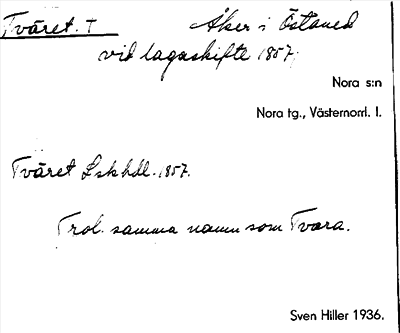 Tväret. T Åker i Östaned
vid lagaskifte 1857,
Nora s:n
Nora tg., Västernorrl. l.
Tväret Lskhdl. 1857.
Trol. samma namn som Tvara.
Sven Hiller 1936.